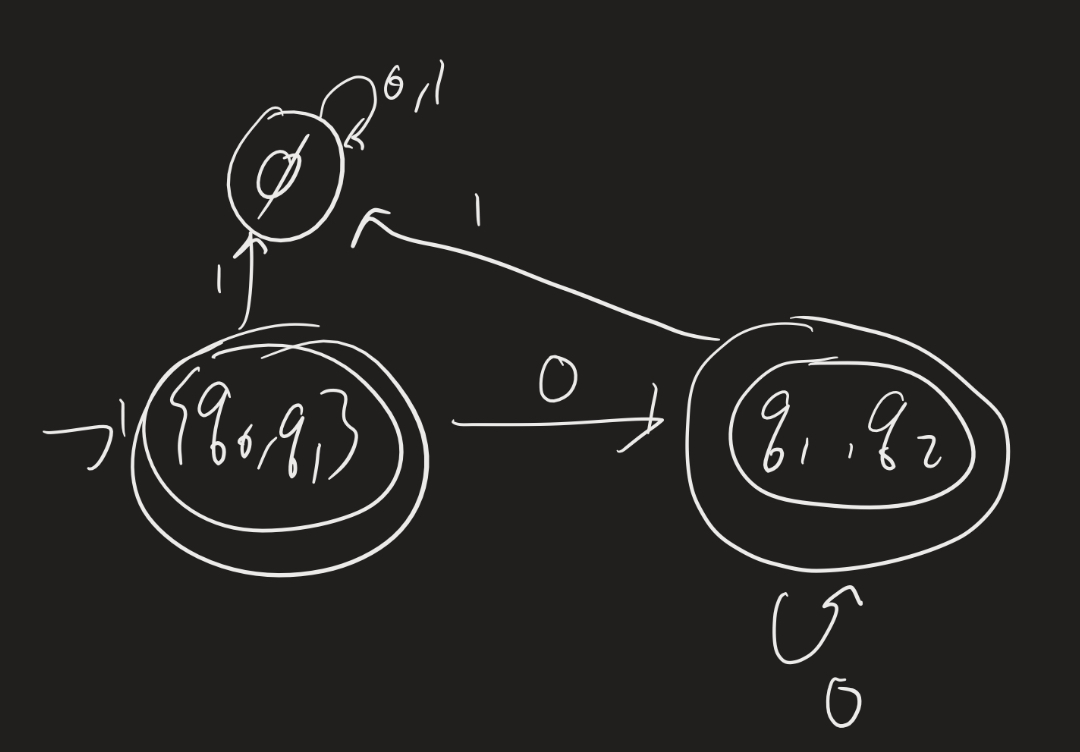 0,1
∅
1
1
0
{q₀,q₁}
q₁,q₂
0